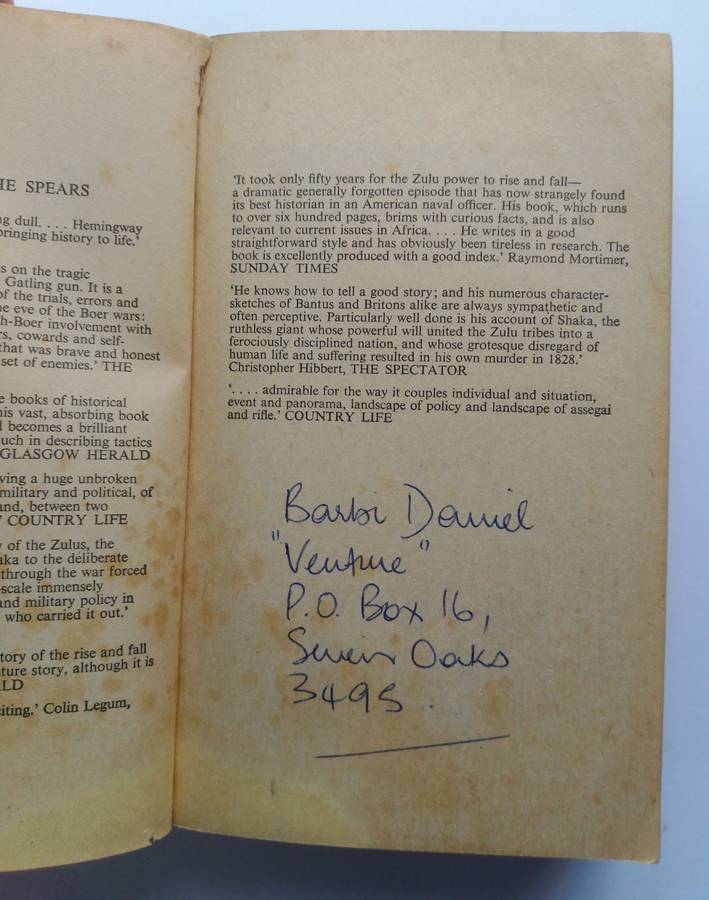 HE SPEARS
ng dull. . . . Hemingway
bringing history to life.'
s on the tragic
Gatling gun. It is a
of the trials, errors and
he eve of the Boer wars:
h-Boer involvement with
rs, cowards and self-
that was brave and honest
set of enemies.' THE
e books of historical
his vast, absorbing book
l becomes a brilliant
uch in describing tactics
GLASGOW HERALD
ving a huge unbroken
military and political, of
and, between two
' COUNTRY LIFE
y of the Zulus, the
aka to the deliberate
through the war forced
-scale immensely
and military policy in
who carried it out.'
tory of the rise and fall
ture story, although it is
LD
citing.' Colin Legum,
'It took only fifty years for the Zulu power to rise and fall—
a dramatic generally forgotten episode that has now strangely found
its best historian in an American naval officer. His book, which runs
to over six hundred pages, brims with curious facts, and is also
relevant to current issues in Africa. . . . He writes in a good
straightforward style and has obviously been tireless in research. The
book is excellently produced with a good index.' Raymond Mortimer,
SUNDAY TIMES
'He knows how to tell a good story; and his numerous character-
sketches of Bantus and Britons alike are always sympathetic and
often perceptive. Particularly well done is his account of Shaka, the
ruthless giant whose powerful will united the Zulu tribes into a
ferociously disciplined nation, and whose grotesque disregard of
human life and suffering resulted in his own murder in 1828.'
Christopher Hibbert, THE SPECTATOR
'. . . . admirable for the way it couples individual and situation,
event and panorama, landscape of policy and landscape of assegai
and rifle.' COUNTRY LIFE
Barbi Daniel
"Venture"
P.O. Box 16,
Seven Oaks
3495.